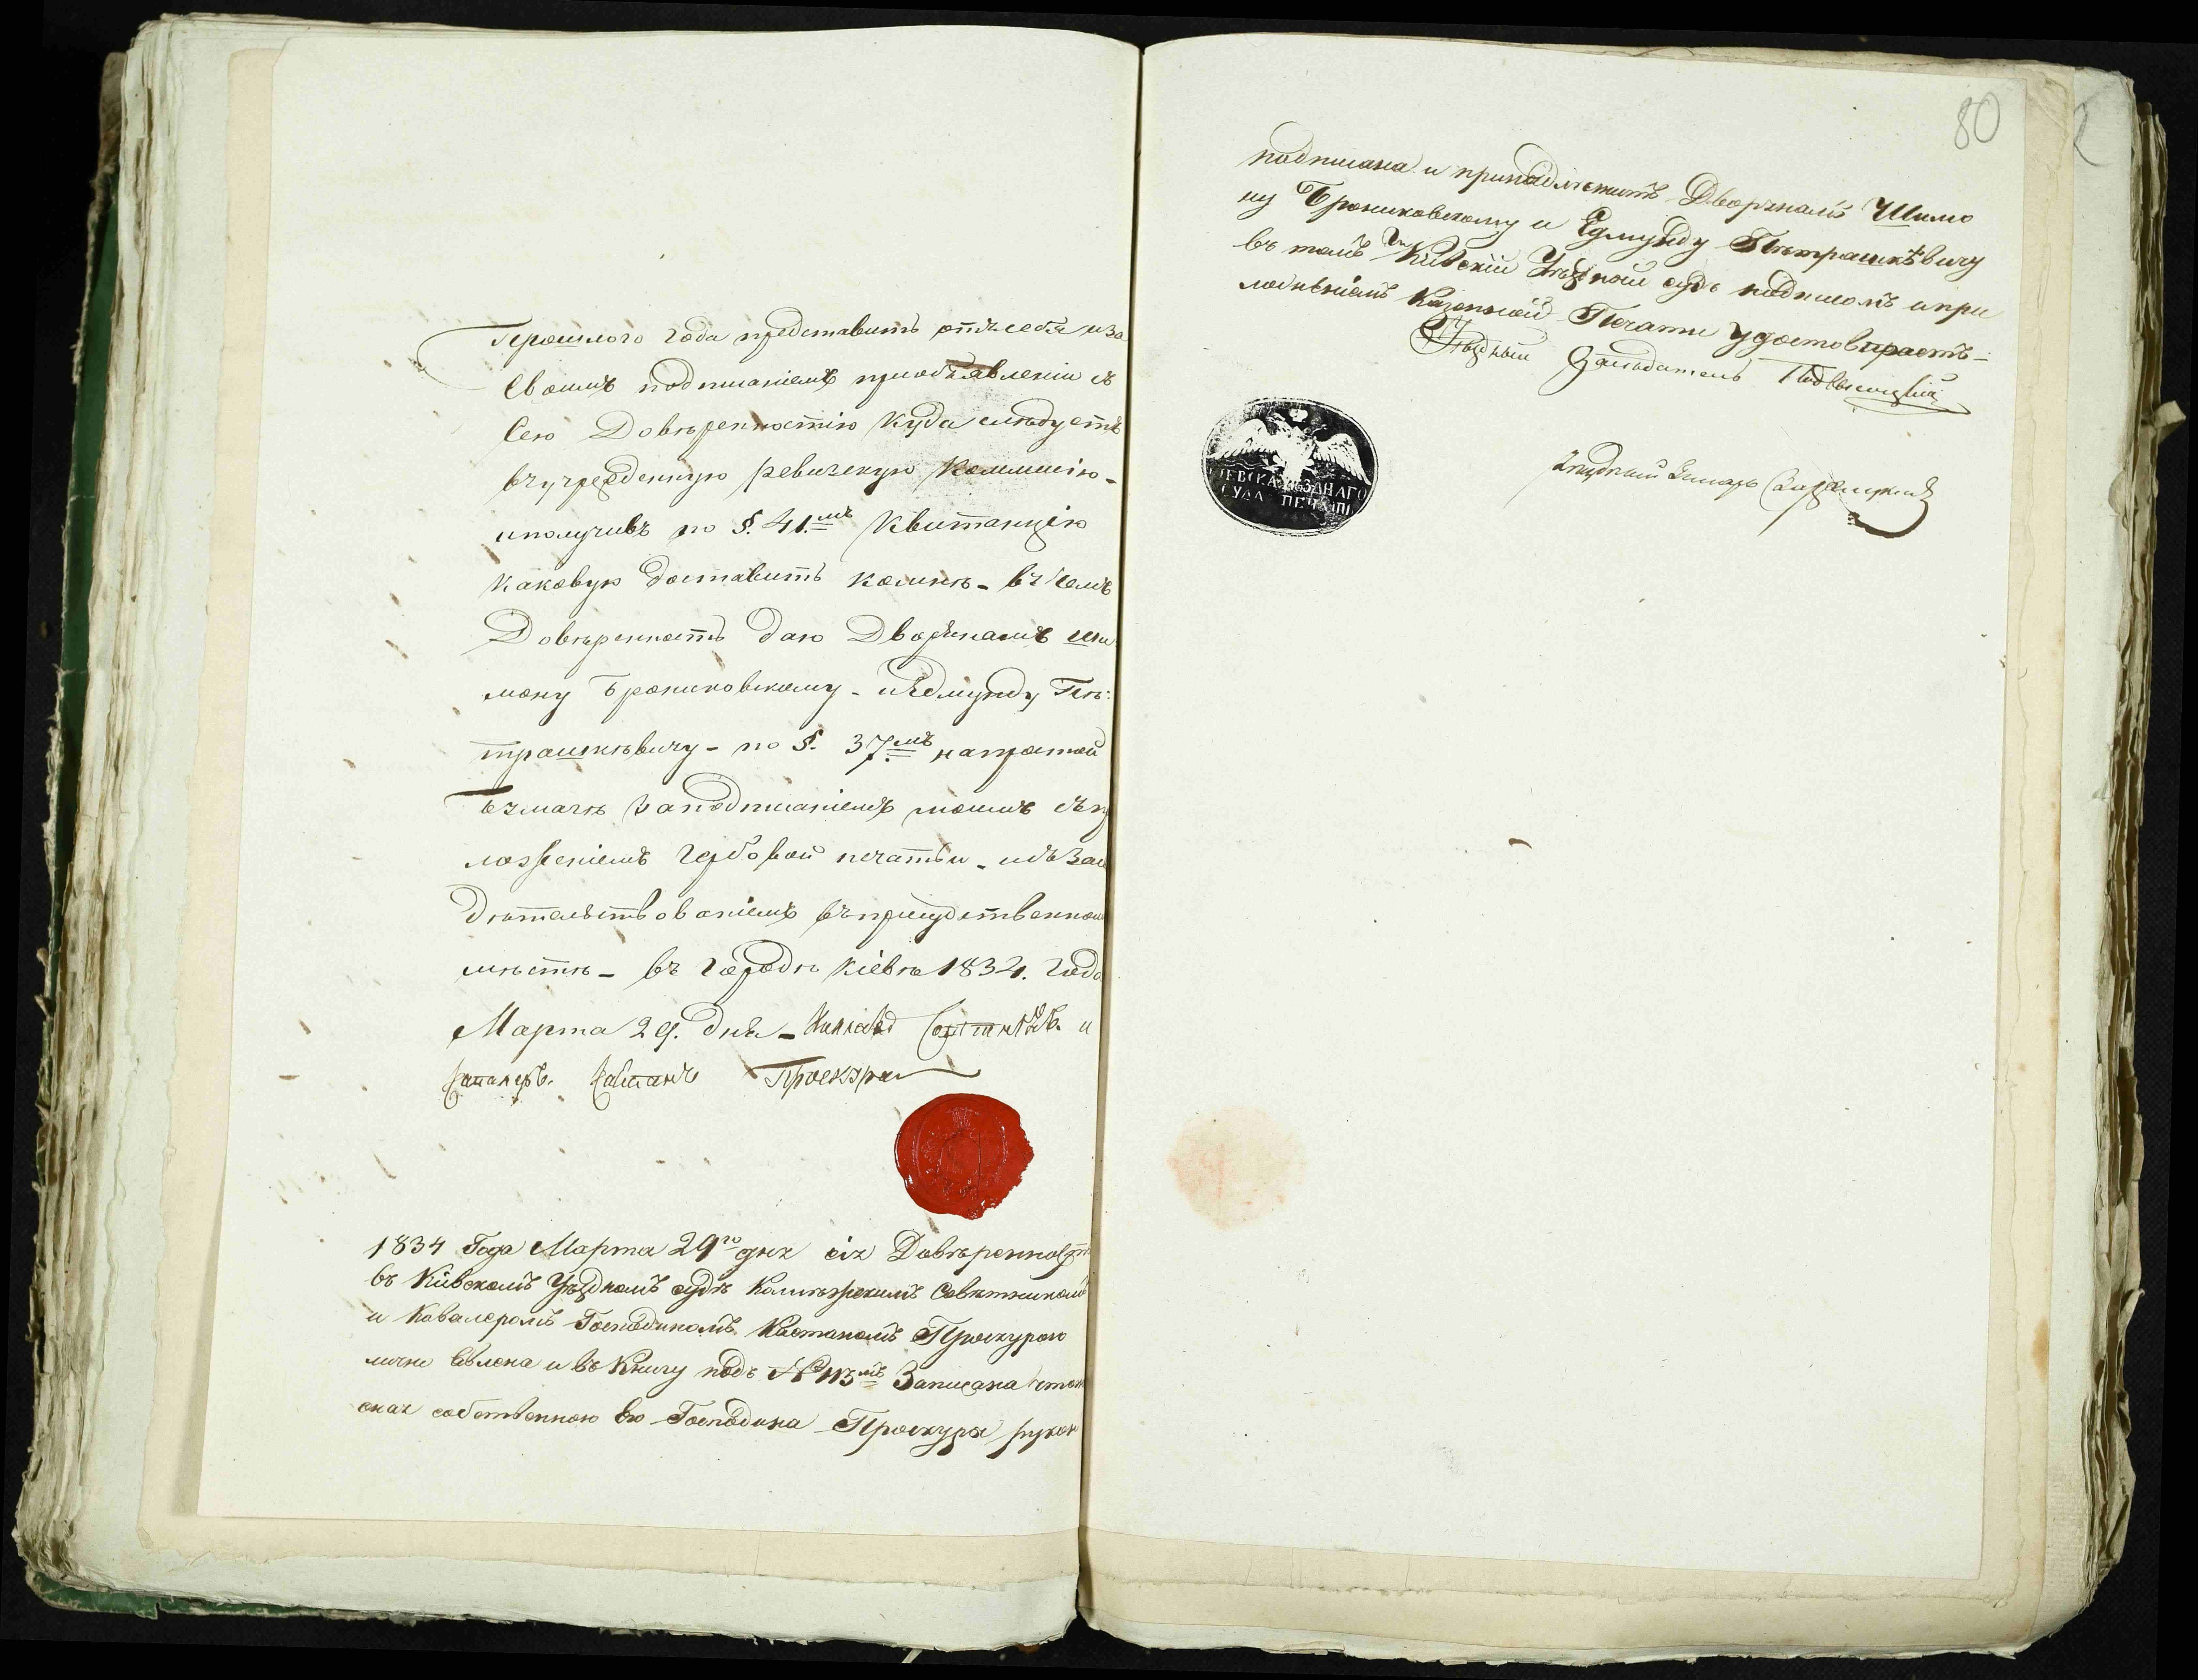 Прошлого года представить отъ себя и за
Своимъ подписаніемъ приобъявленіи съ
Сею Довѣренностію куда слѣдуетъ
въ учрежденную ревизскую Коммисію -
и получивъ по §. 41.мъ Квитанцію
каковую доставить комнѣ - въ чемъ
Довѣренность даю Дворянамъ Ши
мону Брониковскому - и Едмунду Пѣ:
трашкѣвичу - по §. 37.мъ на простой
бумагѣ за подписаніемъ моимъ съ пр
ложеніемъ гербовой печатьи - и съ засв
дѣтельствованіемъ въ присудственном
мѣстѣ - въ городѣ Кіевѣ 1834. года
Марта 29. дня - и
Кавалеръ. Каэтанъ Проскура
1834 Года Марта 29го дня сія Довѣренность
въ Кіевскомъ Уѣздномъ судѣ Совѣтником
и Кавалеромъ Господиномъ Каэтаномъ Проскурою
лично Явлена и въ Книгу подъ № 113мъ Записана что он
оная собственною Его Господина Проскура рукою
80
подписана и принадлежитъ Дворянамъ Шимо
ну Брониковскому и Едмунду Пѣтрашкѣвичу
въ томъ Кіевскій Уѣздный судъ подписомъ и при
ложеніемъ Казенной Печати удостовѣряетъ -
Уѣздный Засѣдатель
ІЕВСКА УѢЗДНАГО
СУДА ПЕЧАТЬ